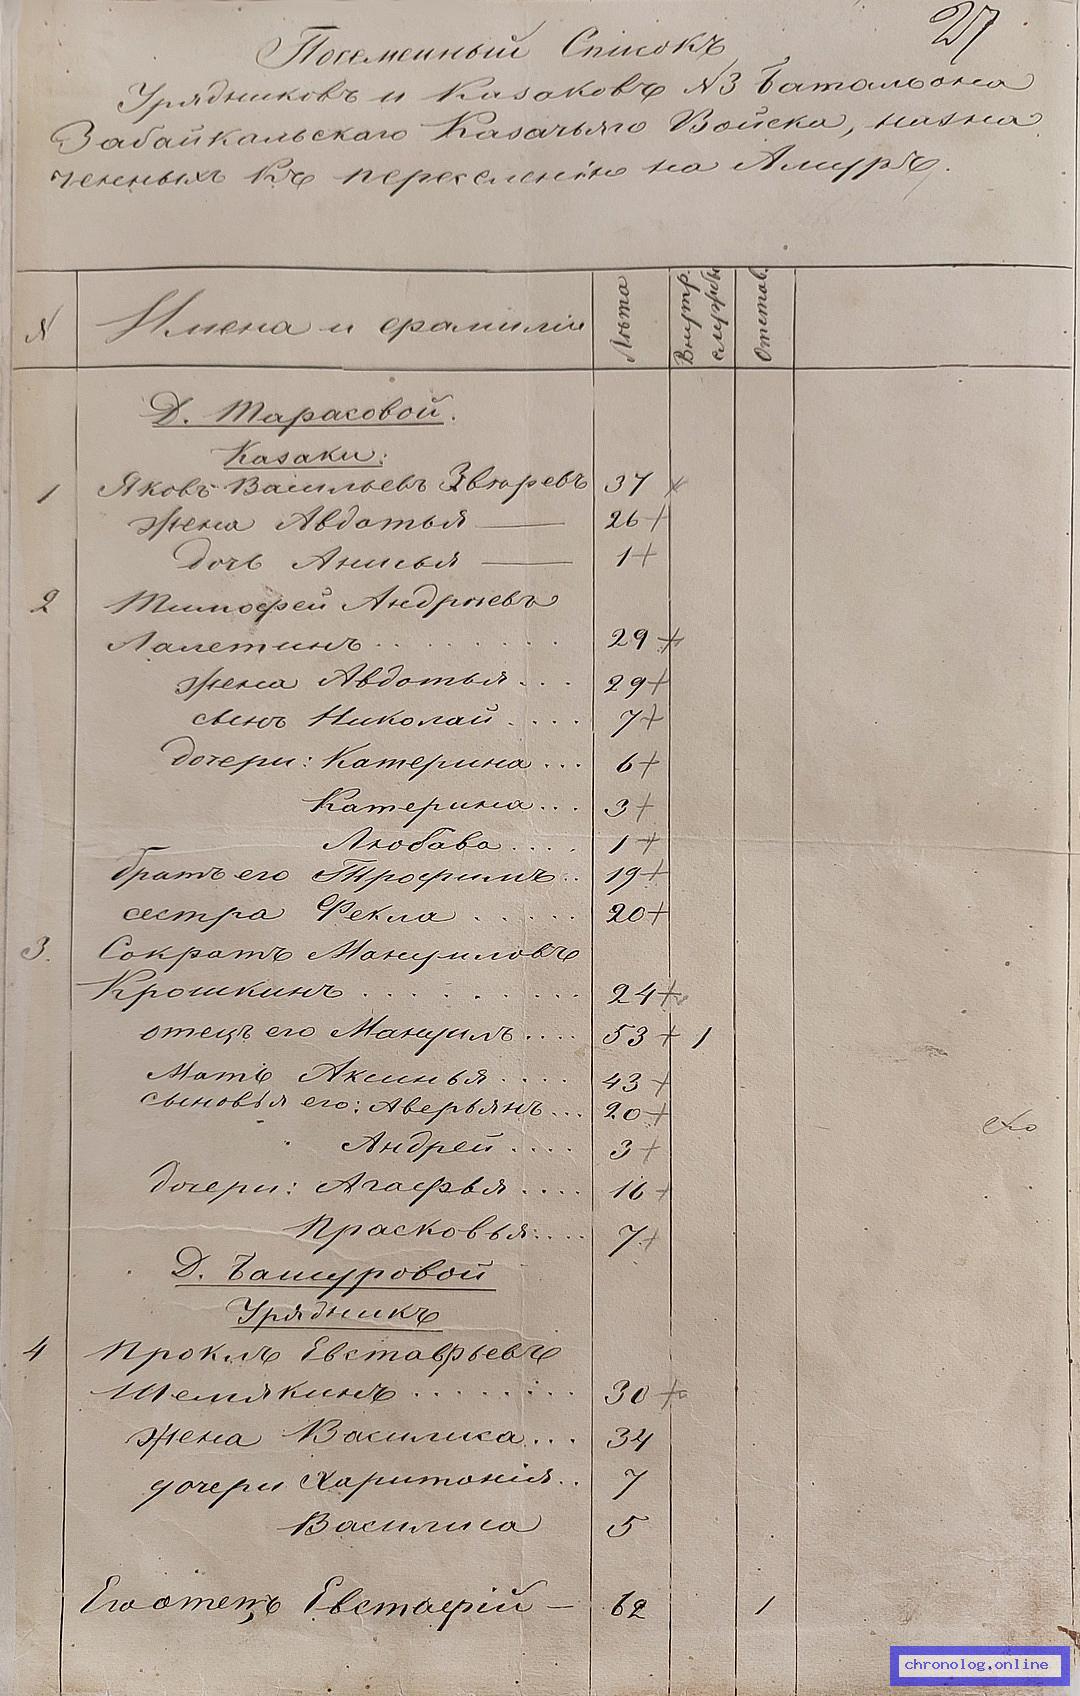 27
Посемейный Списокъ
Урядниковъ и Казаковъ №3 баталіона
Забайкальскаго Казачьяго Войска, назна
ченныхъ къ переселенію на Амуръ.
№ Имена и фамиліи Лѣта Внутр. службы Отстав.
Д. Тарасовой.
Казаки:
1 Яковъ Васильевъ Звѣревъ 37 +
жена Авдотья — 26 +
дочь Анисья — 1 +
2 Тимофей Андреевъ
Лалетинъ . . . . . . . . 29 +
жена Авдотья . . . 29 +
сынъ Николай . . . . 7 +
дочери: Катерина . . . 6 +
Катерина . . . 3 +
Любава . . . . 1 +
братъ его Трофимъ . . 19 +
сестра Фекла . . . . . . 20 +
3. Сократъ Мануиловъ
Крошкинъ . . . . . . . . . . 24 +
отецъ его Мануилъ . . . . 53 + 1
Мать Аксинья . . . . 43 +
сыновья его: Аверьянъ . . . 20 +
Андрей . . . . 3 +
дочери: Агафья . . . . 16 +
Прасковья . . . . 7 +
Д. Башуровой
Урядникъ
4 Проклъ Евстафьевъ
Шемякинъ . . . . . . . . 30 +
жена Василиса . . . 34
дочери Харитонія . . 7
Василиса 5
Его отецъ Евстафій — 62 1
chronolog.online